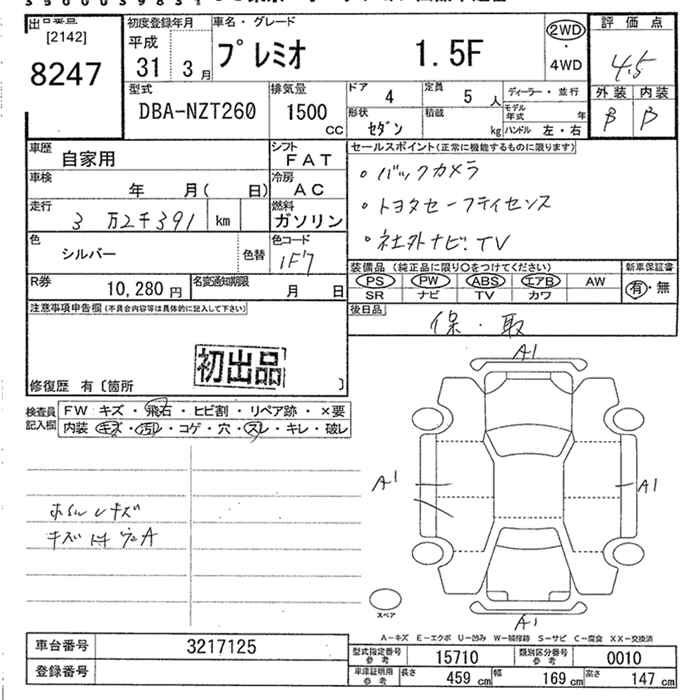 出品番号 [2142] 8247
初度登録年月 平成 31 3 月
車名・グレード プレミオ 1.5F
2WD ・ 4WD
評価点 4.5
外装 内装 B B
型式 DBA-NZT260
排気量 1500 CC
ドア 4 定員 5 人
形状 セダン 積載 kg
ディーラー・並行
モデル年式 年
ハンドル 左・右
車歴 自家用
シフト FAT
車検 年 月( 日)
冷房 AC
走行 3 万2千391 km
燃料 ガソリン
色 シルバー 色替
色コード 1F7
R券 10,280 円 名変通知期限 月 日
セールスポイント(正常に機能するものに限ります)
・バックカメラ
・トヨタセーフティセンス
・社外ナビ.TV
装備品 (純正品に限り○をつけてください)
PS PW ABS エアB AW
SR ナビ TV カワ
新車保証書 有・無
後日品 保・取
注意事項申告欄(不具合内容等は具体的に記入して下さい)
初出品
修復歴 有〔箇所 〕
検査員記入欄
FW キズ・飛石・ヒビ割・リペア跡・×要
内装 キズ・汚レ・コゲ・穴・スレ・キレ・破レ
A1
A1
A1
A1
スペア
A-キズ E-エクボ U-凹み W-補修跡 S-サビ C-腐食 XX-交換済
車台番号 3217125
登録番号
型式指定番号参考 15710 類別区分番号参考 0010
車庫証明用参考 長さ 459 cm 幅 169 cm 高さ 147 cm